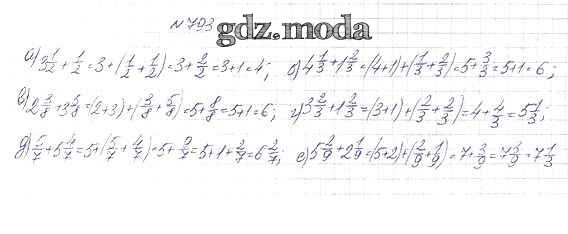 № 793
gdz.moda
а) 3 1/2 + 1/2 = 3 + (1/2 + 1/2) = 3 + 2/2 = 3 + 1 = 4; б) 4 1/3 + 1 2/3 = (4+1) + (1/3 + 2/3) = 5 + 3/3 = 5 + 1 = 6;
в) 2 3/8 + 3 5/8 = (2+3) + (3/8 + 5/8) = 5 + 8/8 = 5 + 1 = 6; г) 3 2/3 + 1 2/3 = (3+1) + (2/3 + 2/3) = 4 + 4/3 = 5 1/3;
д) 5/7 + 5 4/7 = 5 + (5/7 + 4/7) = 5 + 9/7 = 5 + 1 + 2/7 = 6 2/7; е) 5 2/9 + 2 1/9 = (5+2) + (2/9 + 1/9) = 7 + 3/9 = 7 3/9 = 7 1/3